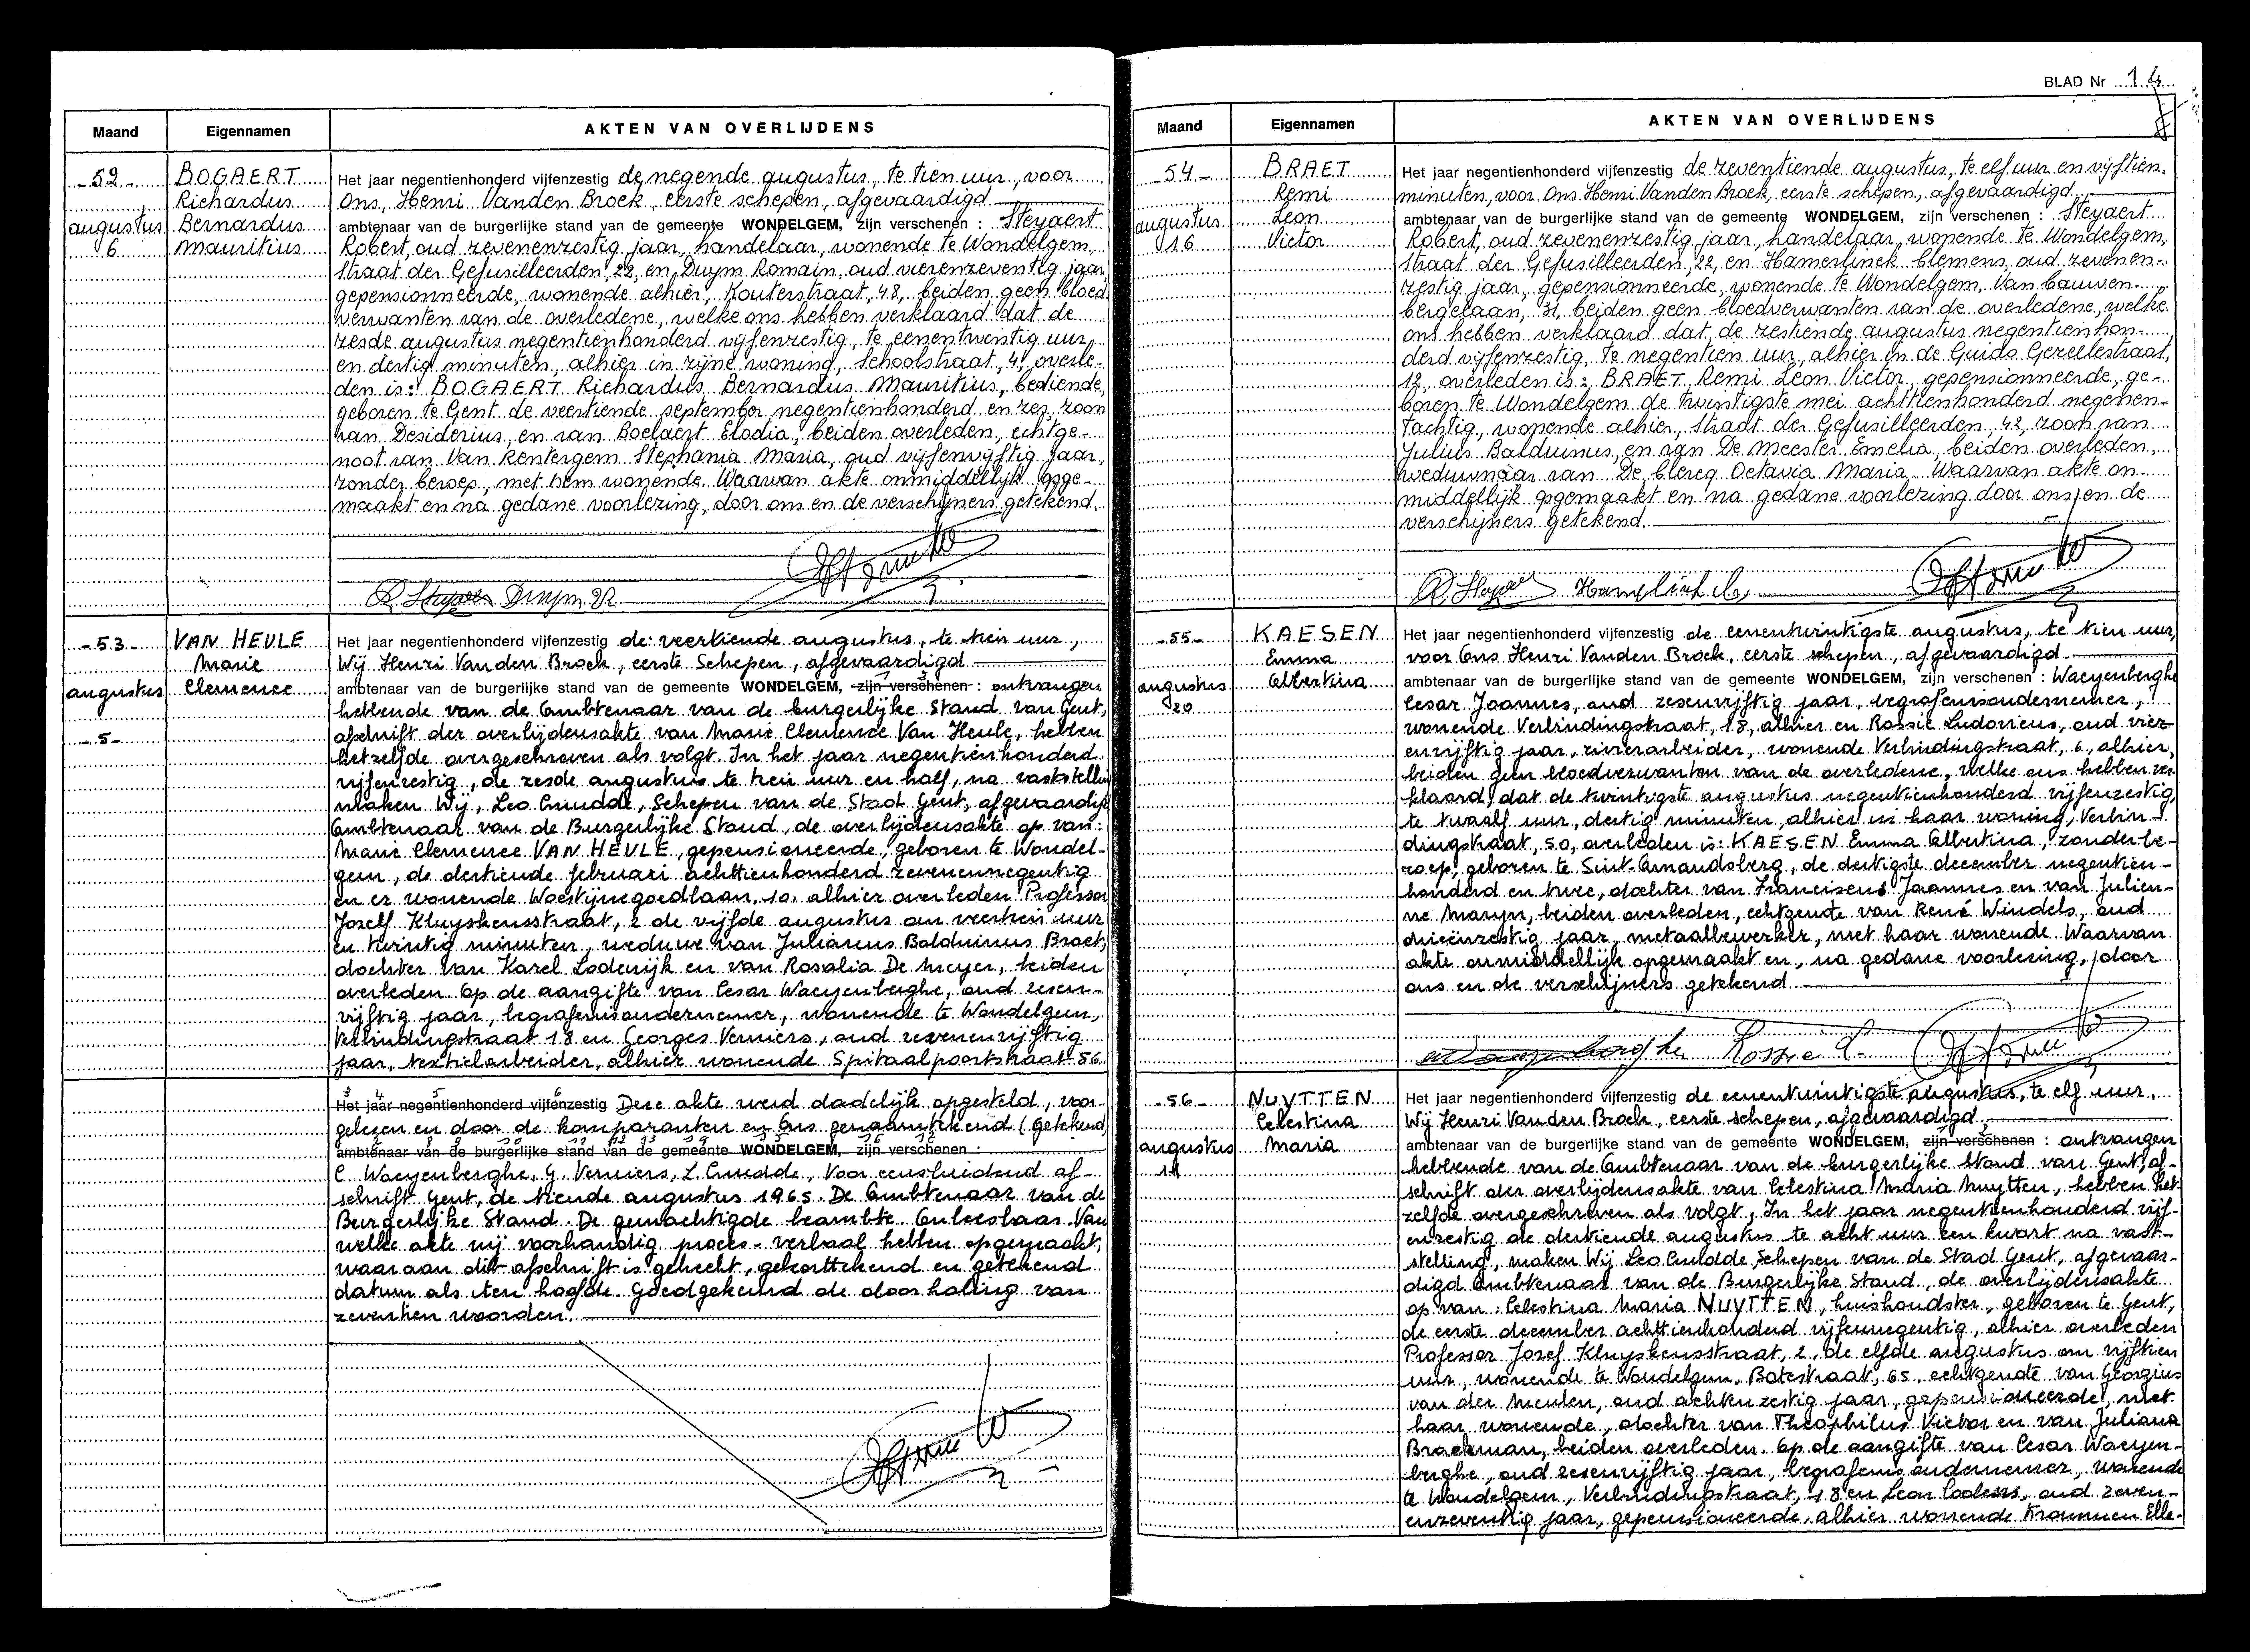 Maand
Eigennamen
AKTEN VAN OVERLIJDENS
- 52 -
augustus
6
BOGAERT
Richardus
Bernardus
Mauritius
Het jaar negentienhonderd vijfenzestig de negende augustus, te tien uur, voor
Ons, Henri Vanden Broek, eerste schepen, afgevaardigd
ambtenaar van de burgerlijke stand van de gemeente WONDELGEM, zijn verschenen : Steyaert
Robert, oud zevenenzestig jaar, handelaar, wonende te Wondelgem,
straat der Gefusilleerden, 22, en Duym Romain, oud vierenzeventig jaar,
gepensionneerde, wonende alhier, Kouterstraat, 48, beiden geen bloed-
verwanten van de overledene, welke ons hebben verklaard dat de
zesde augustus negentienhonderd vijfenzestig, te eenentwintig uur
en dertig minuten, alhier in zijne woning, Schoolstraat, 4, overle-
den is: BOGAERT Richardus Bernardus Mauritius, bediende,
geboren te Gent de veertiende september negentienhonderd en zes, zoon
van Desiderius, en van Boelaert Elodia, beiden overleden, echtge-
noot van Van Rentergem Stephania Maria, oud vijfenvijftig jaar,
zonder beroep, met hem wonende. Waarvan akte onmiddellijk opge-
maakt en na gedane voorlezing, door ons en de verschijners getekend.
Duym R
- 53 -
augustus
- 5 -
VAN HEULE
Marie
Clemence
Het jaar negentienhonderd vijfenzestig de veertiende augustus, te tien uur,
Wij Henri Vanden Broek, eerste Schepen, afgevaardigd
ambtenaar van de burgerlijke stand van de gemeente WONDELGEM, zijn verschenen : ontvangen
hebbende van de Ambtenaar van de burgerlijke Stand van Gent,
afschrift der overlijdensakte van Marie Clemence Van Heule, hebben
hetzelfde overgeschreven als volgt. In het jaar negentienhonderd
vijfenzestig, de zesde augustus te tien uur en half, na vaststelling
maken Wij, Leo Cnudde, Schepen van de Stad Gent, afgevaardigd
Ambtenaar van de Burgerlijke Stand, de overlijdensakte op van:
Marie Clemence VAN HEULE, gepensioneerde, geboren te Wondel-
gem, de dertiende februari achttienhonderd zevenennegentig
en er wonende Woestijnegoedlaan, 10, alhier overleden Professor
Jozef Kluyskensstraat, 2 de vijfde augustus om veertien uur
en twintig minuten, weduwe van Julianus Balduinus Braet,
dochter van Karel Lodewijk en van Rosalia De Meyer, beiden
overleden. Op de aangifte van Cesar Waeyenberghe, oud zesen-
vijftig jaar, begrafenisondernemer, wonende te Wondelgem,
Verbindingstraat 18 en Georges Verniers, oud zevenenvijftig
jaar, textielarbeider, alhier wonende Spitaalpoortstraat 56.
Het jaar negentienhonderd vijfenzestig Deze akte werd dadelijk opgesteld, voor-
gelezen en door de komparanten en Ons genaamtekend (getekend)
ambtenaar van de burgerlijke stand van de gemeente WONDELGEM, zijn verschenen :
C. Waeyenberghe, G. Verniers, L. Cnudde, Voor eensluidend af-
schrift Gent, de tiende augustus 1965. De Ambtenaar van de
Burgerlijke Stand. De gemachtigde beambte. Onleesbaar. Van
welke akte wij voorhandig proces-verbaal hebben opgemaakt,
waaraan dit afschrift is gehecht, gekorttekend en getekend
datum als ten hoofde. Goedgekeurd de doorhaling van
zeventien woorden.
BLAD Nr 14
Maand
Eigennamen
AKTEN VAN OVERLIJDENS
- 54 -
augustus
16
BRAET
Remi
Leon
Victor
Het jaar negentienhonderd vijfenzestig de zeventiende augustus, te elf uur en vijftien
minuten, voor Ons Henri Vanden Broek, eerste schepen, afgevaardigd
ambtenaar van de burgerlijke stand van de gemeente WONDELGEM, zijn verschenen : Steyaert
Robert, oud zevenenzestig jaar, handelaar, wonende te Wondelgem,
straat der Gefusilleerden, 22, en Hamerlinck Clemens, oud zevenen-
zestig jaar, gepensionneerde, wonende te Wondelgem, Van Cauwen-
bergelaan, 31, beiden geen bloedverwanten van de overledene, welke
ons hebben verklaard dat de zestiende augustus negentienhon-
derd vijfenzestig, te negentien uur, alhier in de Guido Gezellestraat,
12, overleden is: BRAET Remi Leon Victor, gepensionneerde, ge-
boren te Wondelgem de twintigste mei achttienhonderd negenen-
tachtig, wonende alhier, straat der Gefusilleerden, 42, zoon van
Julius Balduinus, en van De Meester Emelia, beiden overleden,
weduwnaar van De Clercq Octavia Maria. Waarvan akte on-
middellijk opgemaakt en na gedane voorlezing door ons en de
verschijners getekend.
- 55 -
augustus
20
KAESEN
Emma
Albertina
Het jaar negentienhonderd vijfenzestig de eenentwintigste augustus, te tien uur,
voor Ons Henri Vanden Broek, eerste schepen, afgevaardigd
ambtenaar van de burgerlijke stand van de gemeente WONDELGEM, zijn verschenen : Waeyenberghe
Cesar Joannes, oud zesenvijftig jaar, begrafenisondernemer,
wonende Verbindingstraat, 18, alhier en Rossie Ludovicus, oud vier-
envijftig jaar, rivierarbeider, wonende Verbindingstraat, 6, alhier,
beiden geen bloedverwanten van de overledene, welke ons hebben ver-
klaard dat de twintigste augustus negentienhonderd vijfenzestig,
te twaalf uur, dertig minuten, alhier in haar woning, Verbin-
dingstraat, 50, overleden is: KAESEN Emma Albertina, zonder be-
roep, geboren te Sint-Amandsberg, de dertigste december negentien-
honderd en twee, dochter van Franciscus Joannes en van Julien-
ne Maryn, beiden overleden, echtgenote van René Windels, oud
drieënzestig jaar, metaalbewerker, met haar wonende. Waarvan
akte onmiddellijk opgemaakt en, na gedane voorlezing, door
ons en de verschijners getekend
Rossie L.
- 56 -
augustus
11
NUYTTEN
Celestina
Maria
Het jaar negentienhonderd vijfenzestig de eenentwintigste augustus, te elf uur,
Wij Henri Vanden Broek, eerste schepen, afgevaardigd,
ambtenaar van de burgerlijke stand van de gemeente WONDELGEM, zijn verschenen : ontvangen
hebbende van de Ambtenaar van de burgerlijke Stand van Gent, af-
schrift der overlijdensakte van Celestina Maria Nuytten, hebben het-
zelfde overgeschreven als volgt, In het jaar negentienhonderd vijf-
enzestig de dertiende augustus te acht uur een kwart na vast-
stelling, maken Wij Leo Cnudde, Schepen van de Stad Gent, afgevaar-
digd Ambtenaar van de Burgerlijke Stand, de overlijdensakte
op van: Celestina Maria NUYTTEN, huishoudster, geboren te Gent,
de eerste december achttienhonderd vijfennegentig, alhier overleden
Professor Jozef Kluyskensstraat, 2, de elfde augustus om vijftien
uur, wonende te Wondelgem, Botestraat, 65, echtgenote van Georgius
van der Meulen, oud achtenzestig jaar, gepensioneerde, met
haar wonende, dochter van Theophilus Victor en van Juliana
Braekman, beiden overleden. Op de aangifte van Cesar Waeyen-
berghe, oud zesenvijftig jaar, begrafenisondernemer, wonende
te Wondelgem, Verbindingstraat, 18 en Leon Coolens, oud zeven-
enzeventig jaar, gepensioneerde, alhier wonende Krommen Elle-